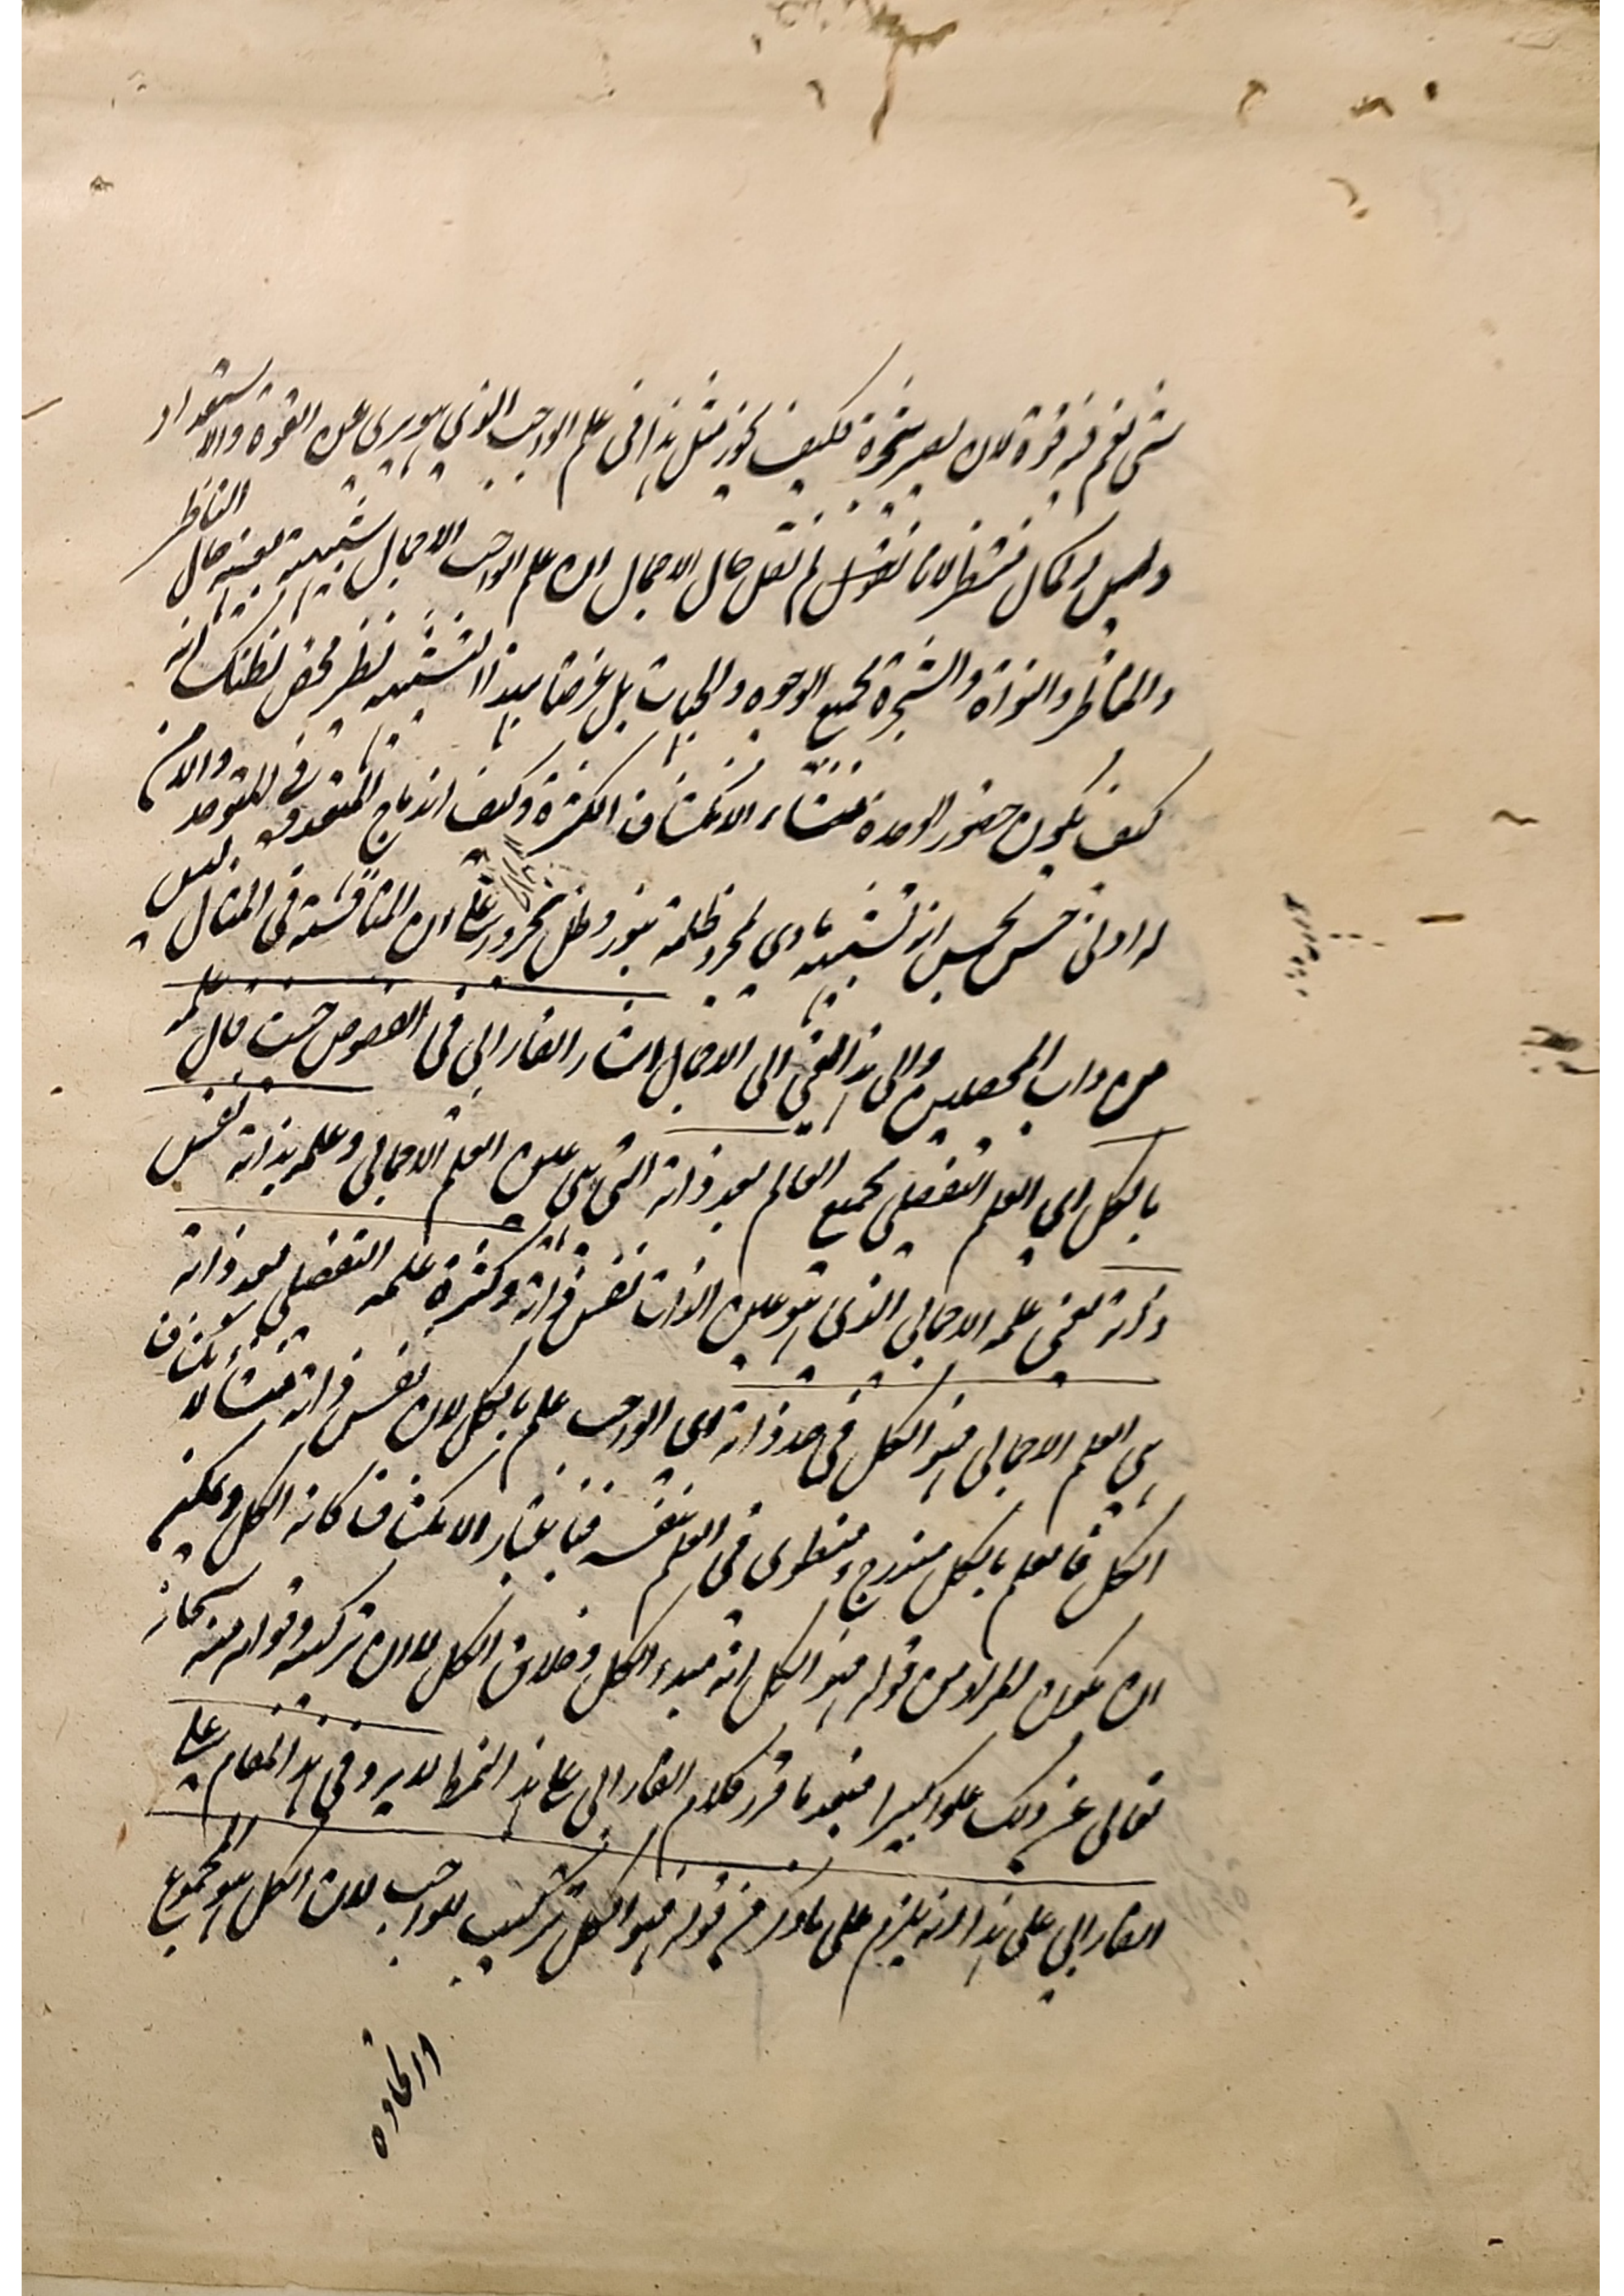 شيء نعم فيه قوة لان يصير شجرة فكيف يجوز مثل هذا في علم الواجب الذي هو بريء عن القوة والاستعداد
وليس له كمال منتظر لانا نقول لم نقل حال الاجمال ان علم الواجب الاجمالي شبيه بعينه حال الناظر
والمناظر والنواة والشجرة بجميع الوجوه والجهات بل غرضنا بهذا التشبيه نظر محض لظنك انه
كيف يكون حضور الوحدة منشاء الانكشاف الكثرة وكيف اندماج المتعدد في المتوحد والا فمن
له ادنى حس يحس انه تشبيه مادي لمجرد ظلمة بنور وظل بحرور على ان المناقشة في المثال ليس
من داب المحصلين والى هذا المعنى الى الاجمال اشار الفارابي في الفصوص حيث قال علمه
بالكل اي العلم التفصيلي بجميع العالم بعد ذاته التي هي عين العلم الاجمالي وعلمه بذاته نفس
ذاته يعني علمه الاجمالي الذي هو عين الذات نفس ذاته وكثرة علمه التفصيلي بعد ذاته
هي العلم الاجمالي فهو الكل في حد ذاته اي الواجب علم بالكل لان نفس ذاته منشا لانكشاف
الكل فالعلم بالكل مندرج ومنطوي في العلم بنفسه فباعتبار الانكشاف كانه الكل ويمكن
ان يكون المراد من قوله فهو الكل انه مبدء الكل وخلاق الكل لا ان تركبه وقوامه منه سبحانه
تعالى عن ذلك علوا كبيرا فبعد ما قرر كلام الفارابي على هذا النمط لا يرد في هذا المقام على
الفارابي على هذا انه يلزم على ما ذكر من قوله فهو الكل تركيب للواجب لان الكل هو المجموع